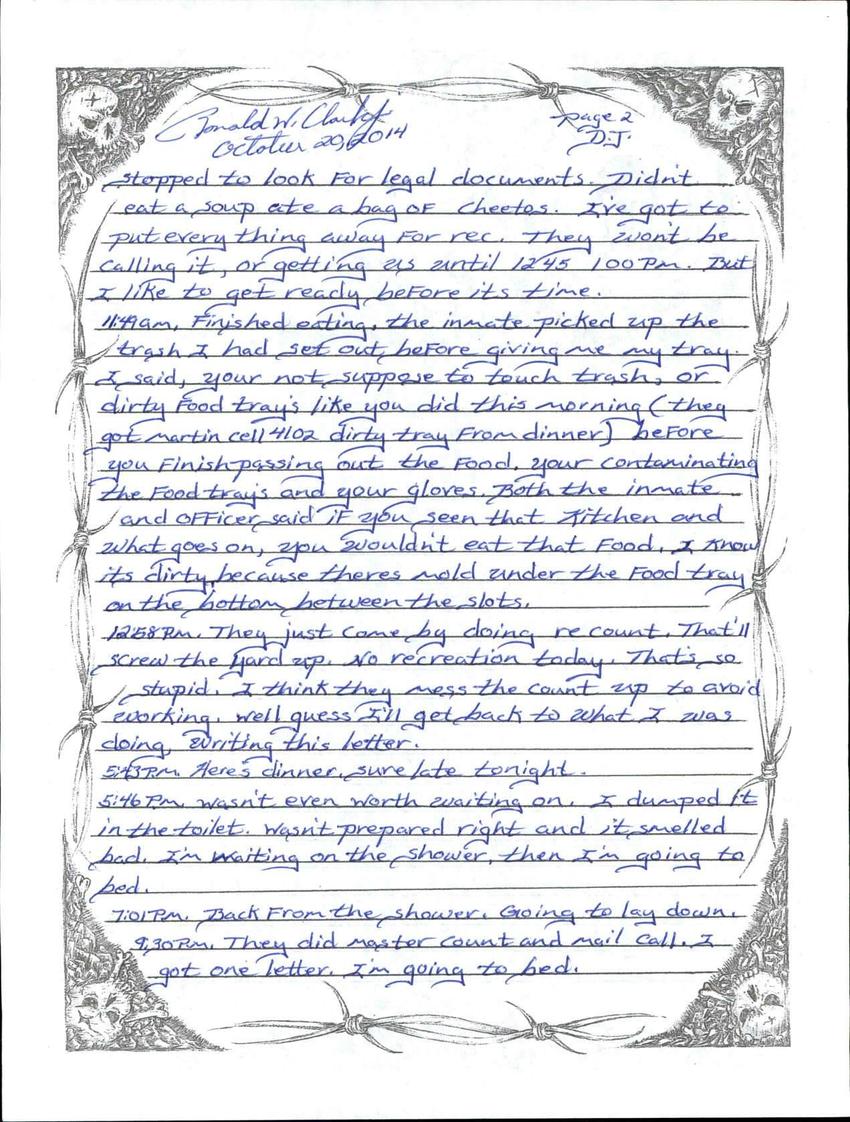 Ronald W. Clark Jr
page 2
October 20, 2014
D.J.
stopped to look For legal documents. Didn't
eat a soup ate a bag of Cheetos. I've got to
put every thing away For rec. They won't be
calling it, or getting us until 1245 100 Pm. But
I like to get ready before its time.
11:49am. Finished eating, the inmate picked up the
trash I had set out, before giving me my tray.
I said, your not suppose to touch trash, or
dirty Food tray's like you did this morning (they
got martin cell 4102 dirty tray From dinner) before
you Finish passing out the Food. your contaminating
the Food tray's and your gloves. Both the inmate
and officer said if you seen that Kitchen and
what goes on, you wouldn't eat that Food. I know
its dirty, because theres mold under the Food tray
on the bottom between the slots.
12:58 Pm. They just come by doing re count. That'll
screw the yard up. No recreation today. That's so
stupid. I think they mess the count up to avoid
working. well guess I'll get back to what I was
doing, writing this letter.
5:43 Pm. Here's dinner, sure late tonight.
5:46 Pm. wasn't even worth waiting on. I dumped it
in the toilet. wasn't prepared right and it smelled
bad. I'm waiting on the shower, then I'm going to
bed.
7:01 Pm. Back From the shower. Going to lay down.
9:30 Pm. They did master count and mail call. I
got one letter. I'm going to bed.